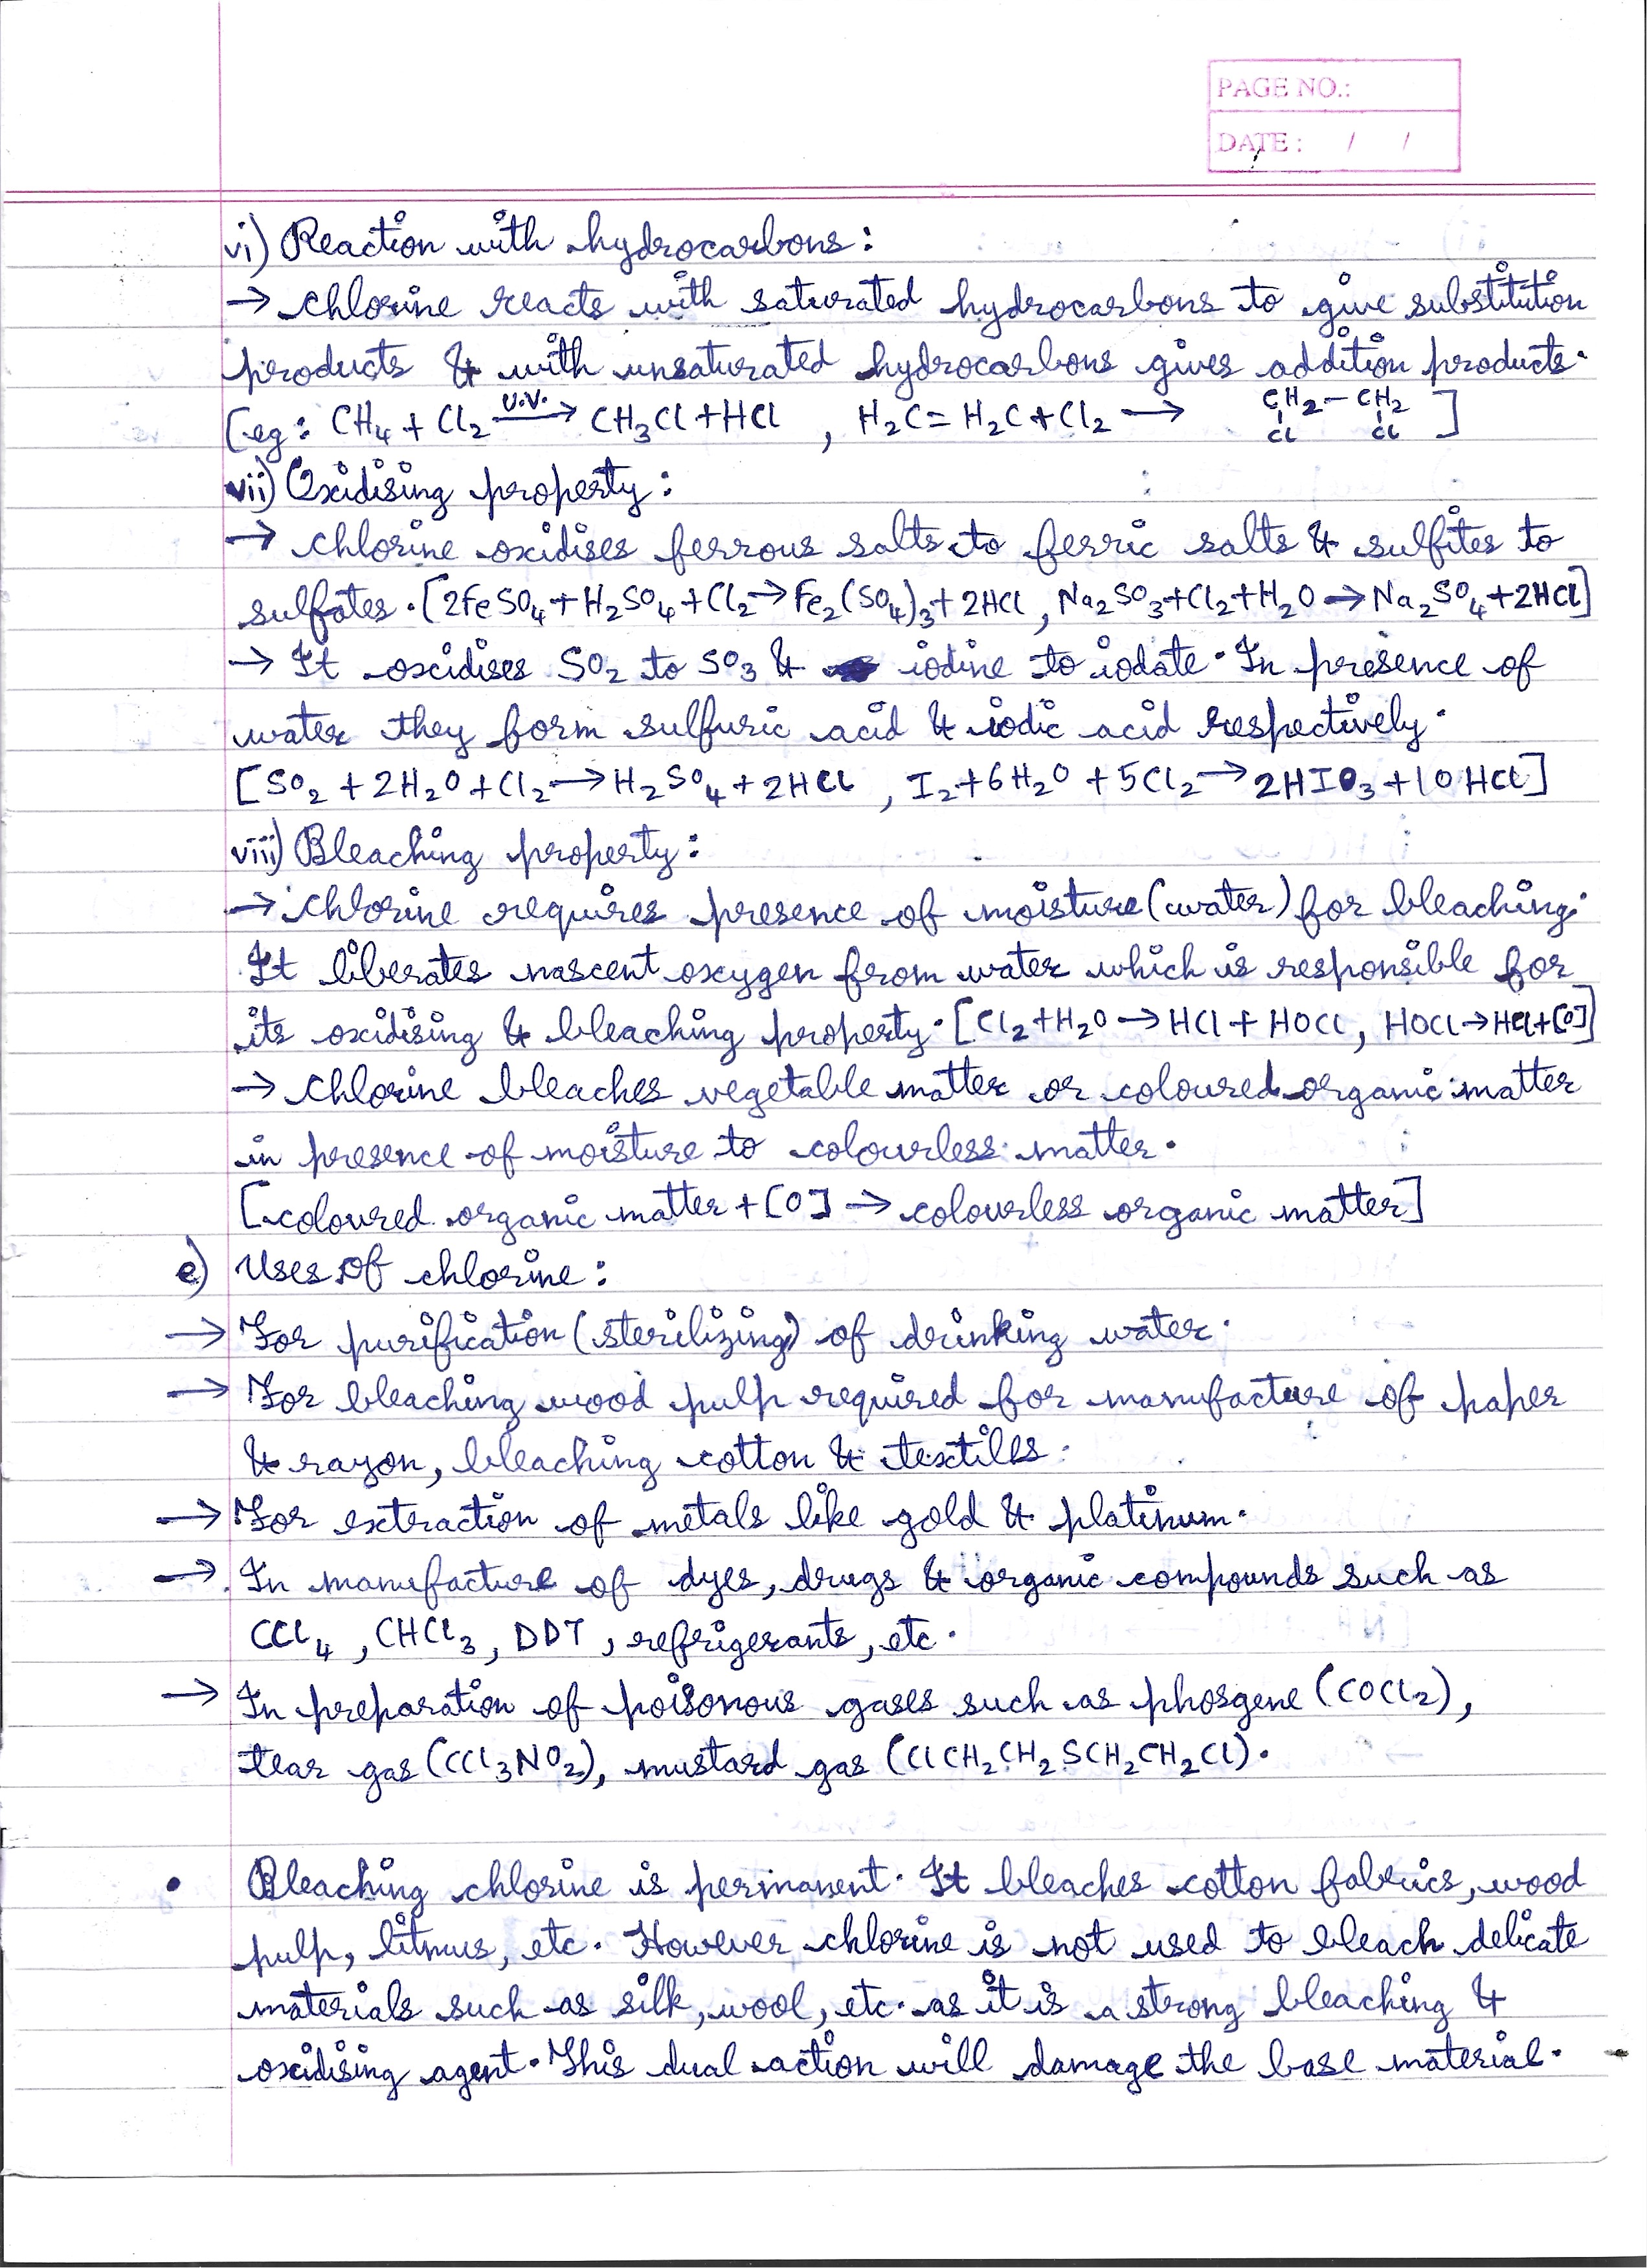 PAGE NO.:
DATE : / /
vi) Reaction with hydrocarbons:
→ chlorine reacts with saturated hydrocarbons to give substitution
products & with unsaturated hydrocarbons gives addition products.
[eg: CH₄ + Cl₂ —U.V.→ CH₃Cl + HCl , H₂C = H₂C + Cl₂ → CH₂ – CH₂ ]
Cl Cl
vii) Oxidising property:
→ chlorine oxidises ferrous salts to ferric salts & sulfites to
sulfates. [2FeSO₄ + H₂SO₄ + Cl₂ → Fe₂(SO₄)₃ + 2HCl , Na₂SO₃ + Cl₂ + H₂O → Na₂SO₄ + 2HCl]
→ It oxidises SO₂ to SO₃ & iodine to iodate. In presence of
water they form sulfuric acid & iodic acid respectively.
[SO₂ + 2H₂O + Cl₂ → H₂SO₄ + 2HCl , I₂ + 6H₂O + 5Cl₂ → 2HIO₃ + 10HCl]
viii) Bleaching property:
→ chlorine requires presence of moisture (water) for bleaching.
It liberates nascent oxygen from water which is responsible for
its oxidising & bleaching property. [Cl₂ + H₂O → HCl + HOCl, HOCl → HCl + [O]]
→ chlorine bleaches vegetable matter or coloured organic matter
in presence of moisture to colourless matter.
[coloured organic matter + [O] → colourless organic matter]
e) Uses of chlorine:
→ For purification (sterilizing) of drinking water.
→ For bleaching wood pulp required for manufacture of paper
& rayon, bleaching cotton & textiles.
→ For extraction of metals like gold & platinum.
→ In manufacture of dyes, drugs & organic compounds such as
CCl₄, CHCl₃, DDT, refrigerants, etc.
→ In preparation of poisonous gases such as phosgene (COCl₂),
tear gas (CCl₃NO₂), mustard gas (ClCH₂CH₂SCH₂CH₂Cl).
• Bleaching chlorine is permanent. It bleaches cotton fabrics, wood
pulp, litmus, etc. However chlorine is not used to bleach delicate
materials such as silk, wool, etc. as it is a strong bleaching &
oxidising agent. This dual action will damage the base material.